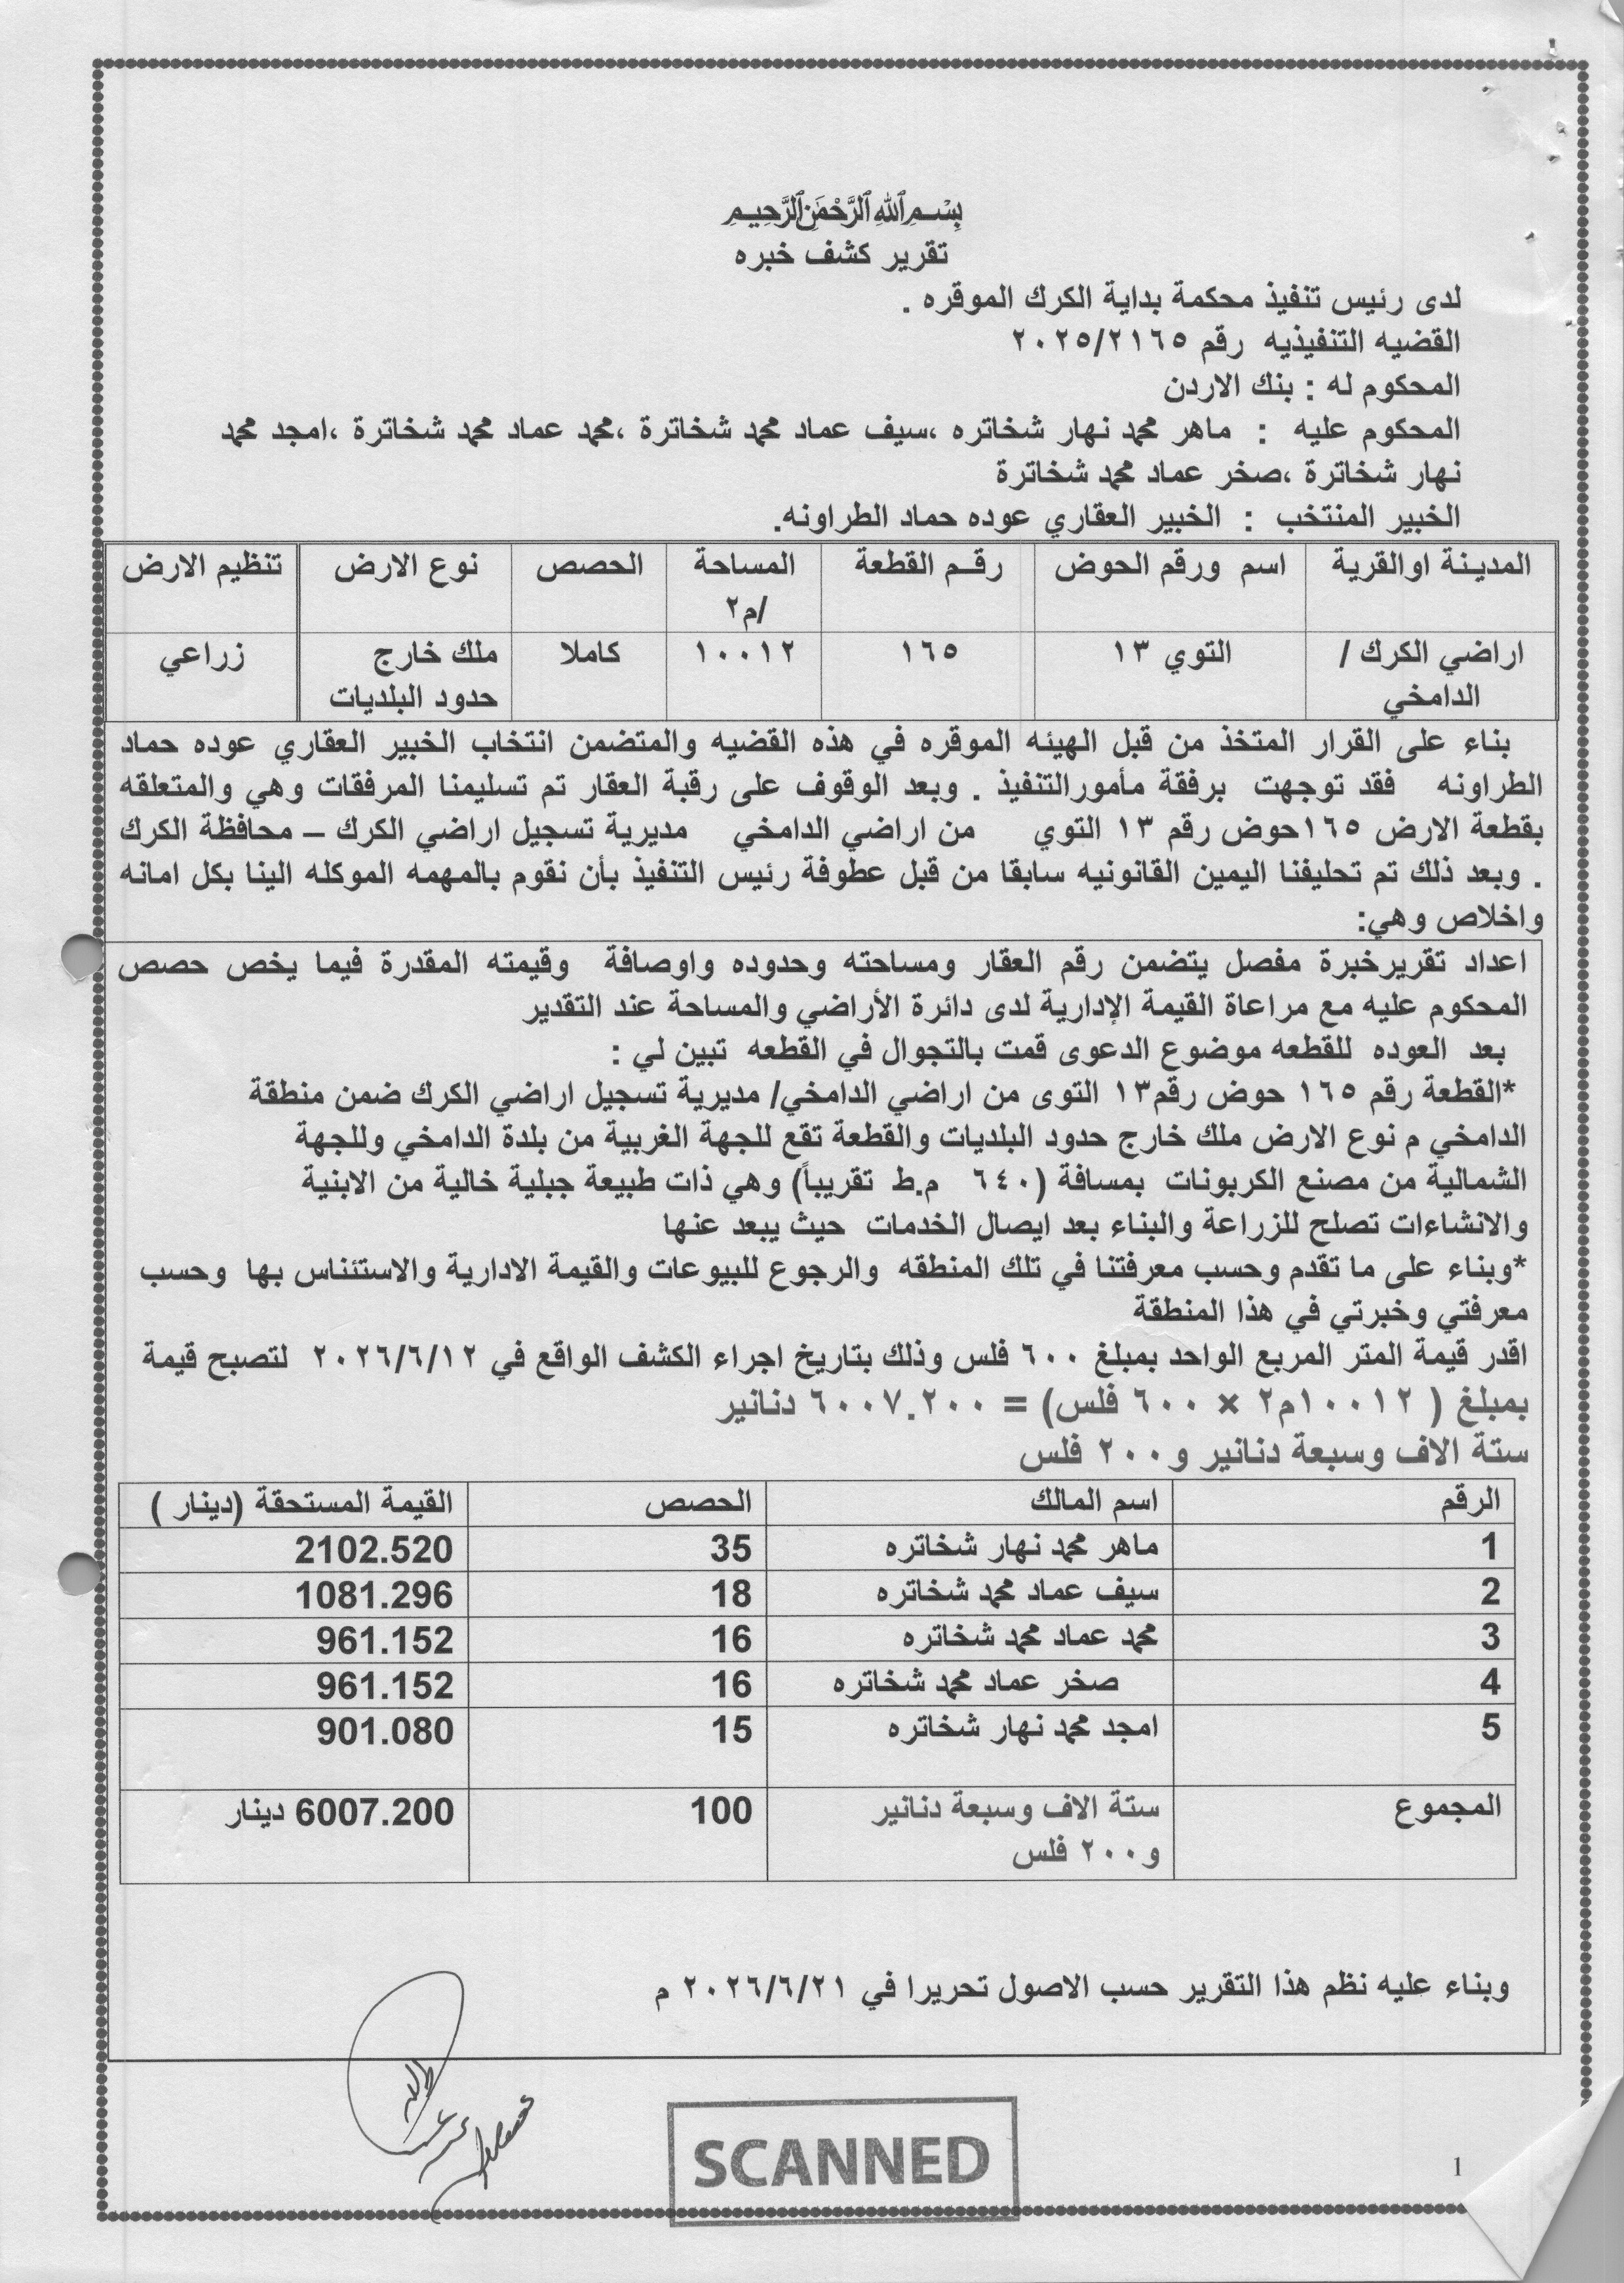 بسم الله الرحمن الرحيم
تقرير كشف خبره
لدى رئيس تنفيذ محكمة بداية الكرك الموقره .
القضيه التنفيذيه رقم ٢٠٢٥/٢١٦٥
المحكوم له : بنك الاردن
المحكوم عليه : ماهر محمد نهار شخاتره ،سيف عماد محمد شخاترة ،محمد عماد محمد شخاترة ،امجد محمد
نهار شخاترة ،صخر عماد محمد شخاترة
الخبير المنتخب : الخبير العقاري عوده حماد الطراونه.
المدينة اوالقرية اسم ورقم الحوض رقم القطعة المساحة /م٢ الحصص نوع الارض تنظيم الارض
اراضي الكرك / الدامخي التوي ١٣ ١٦٥ ١٠٠١٢ كاملا ملك خارج حدود البلديات زراعي
بناء على القرار المتخذ من قبل الهيئه الموقره في هذه القضيه والمتضمن انتخاب الخبير العقاري عوده حماد
الطراونه فقد توجهت برفقة مأمورالتنفيذ . وبعد الوقوف على رقبة العقار تم تسليمنا المرفقات وهي والمتعلقه
بقطعة الارض ١٦٥حوض رقم ١٣ التوي من اراضي الدامخي مديرية تسجيل اراضي الكرك – محافظة الكرك
. وبعد ذلك تم تحليفنا اليمين القانونيه سابقا من قبل عطوفة رئيس التنفيذ بأن نقوم بالمهمه الموكله الينا بكل امانه
واخلاص وهي:
اعداد تقريرخبرة مفصل يتضمن رقم العقار ومساحته وحدوده واوصافة وقيمته المقدرة فيما يخص حصص
المحكوم عليه مع مراعاة القيمة الإدارية لدى دائرة الأراضي والمساحة عند التقدير
بعد العوده للقطعه موضوع الدعوى قمت بالتجوال في القطعه تبين لي :
*القطعة رقم ١٦٥ حوض رقم١٣ التوى من اراضي الدامخي/ مديرية تسجيل اراضي الكرك ضمن منطقة
الدامخي م نوع الارض ملك خارج حدود البلديات والقطعة تقع للجهة الغربية من بلدة الدامخي وللجهة
الشمالية من مصنع الكربونات بمسافة (٦٤٠ م.ط تقريباً) وهي ذات طبيعة جبلية خالية من الابنية
والانشاءات تصلح للزراعة والبناء بعد ايصال الخدمات حيث يبعد عنها
*وبناء على ما تقدم وحسب معرفتنا في تلك المنطقه والرجوع للبيوعات والقيمة الادارية والاستئناس بها وحسب
معرفتي وخبرتي في هذا المنطقة
اقدر قيمة المتر المربع الواحد بمبلغ ٦٠٠ فلس وذلك بتاريخ اجراء الكشف الواقع في ٢٠٢٦/٦/١٢ لتصبح قيمة
بمبلغ ( ١٠٠١٢م٢ × ٦٠٠ فلس) = ٦٠٠٧.٢٠٠ دنانير
ستة الاف وسبعة دنانير و٢٠٠ فلس
الرقم اسم المالك الحصص القيمة المستحقة (دينار )
1 ماهر محمد نهار شخاتره 35 2102.520
2 سيف عماد محمد شخاتره 18 1081.296
3 محمد عماد محمد شخاتره 16 961.152
4 صخر عماد محمد شخاتره 16 961.152
5 امجد محمد نهار شخاتره 15 901.080
المجموع ستة الاف وسبعة دنانير و٢٠٠ فلس 100 6007.200 دينار
وبناء عليه نظم هذا التقرير حسب الاصول تحريرا في ٢٠٢٦/٦/٢١ م
SCANNED
1